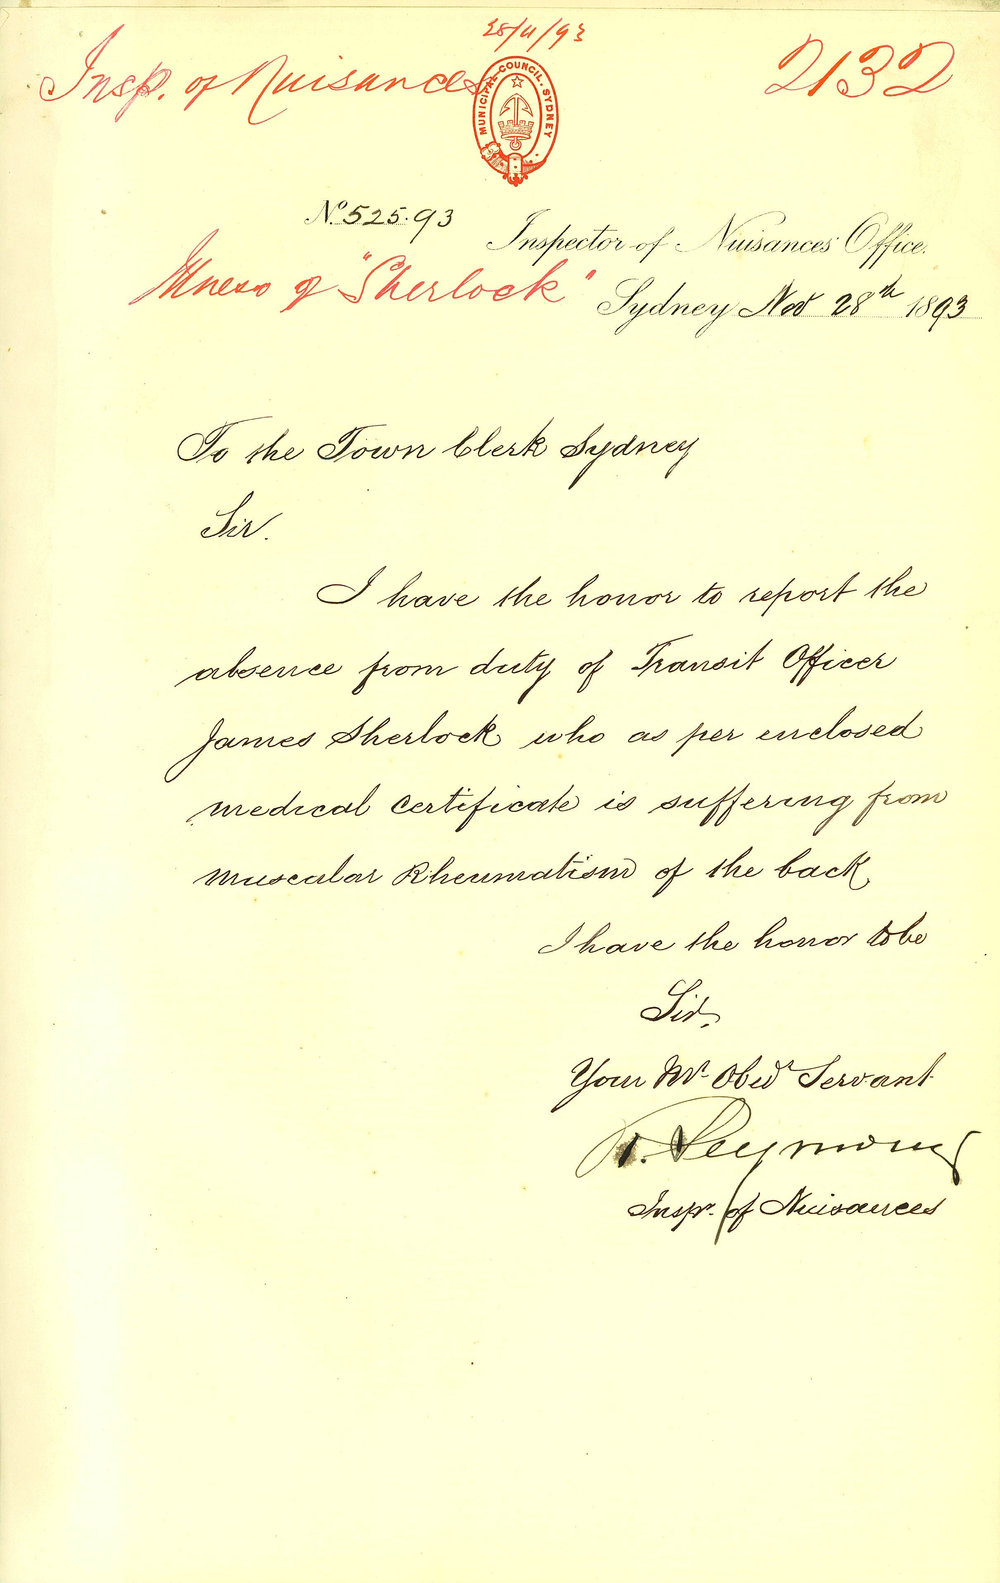 28/11/93
Insp. of Nuisances
2132
MUNICIPAL COUNCIL. SYDNEY
No. 525.93
Inspector of Nuisances Office.
Illness of "Sherlock"
Sydney Nov 28th 1893
To the Town Clerk Sydney
Sir.
I have the honor to report the
absence from duty of Transit Officer
James Sherlock who as per enclosed
medical certificate is suffering from
muscular Rheumatism of the back
I have the honor to be
Sir,
Your Mt. Obedt Servant
Seymour
Inspr. of Nuisances